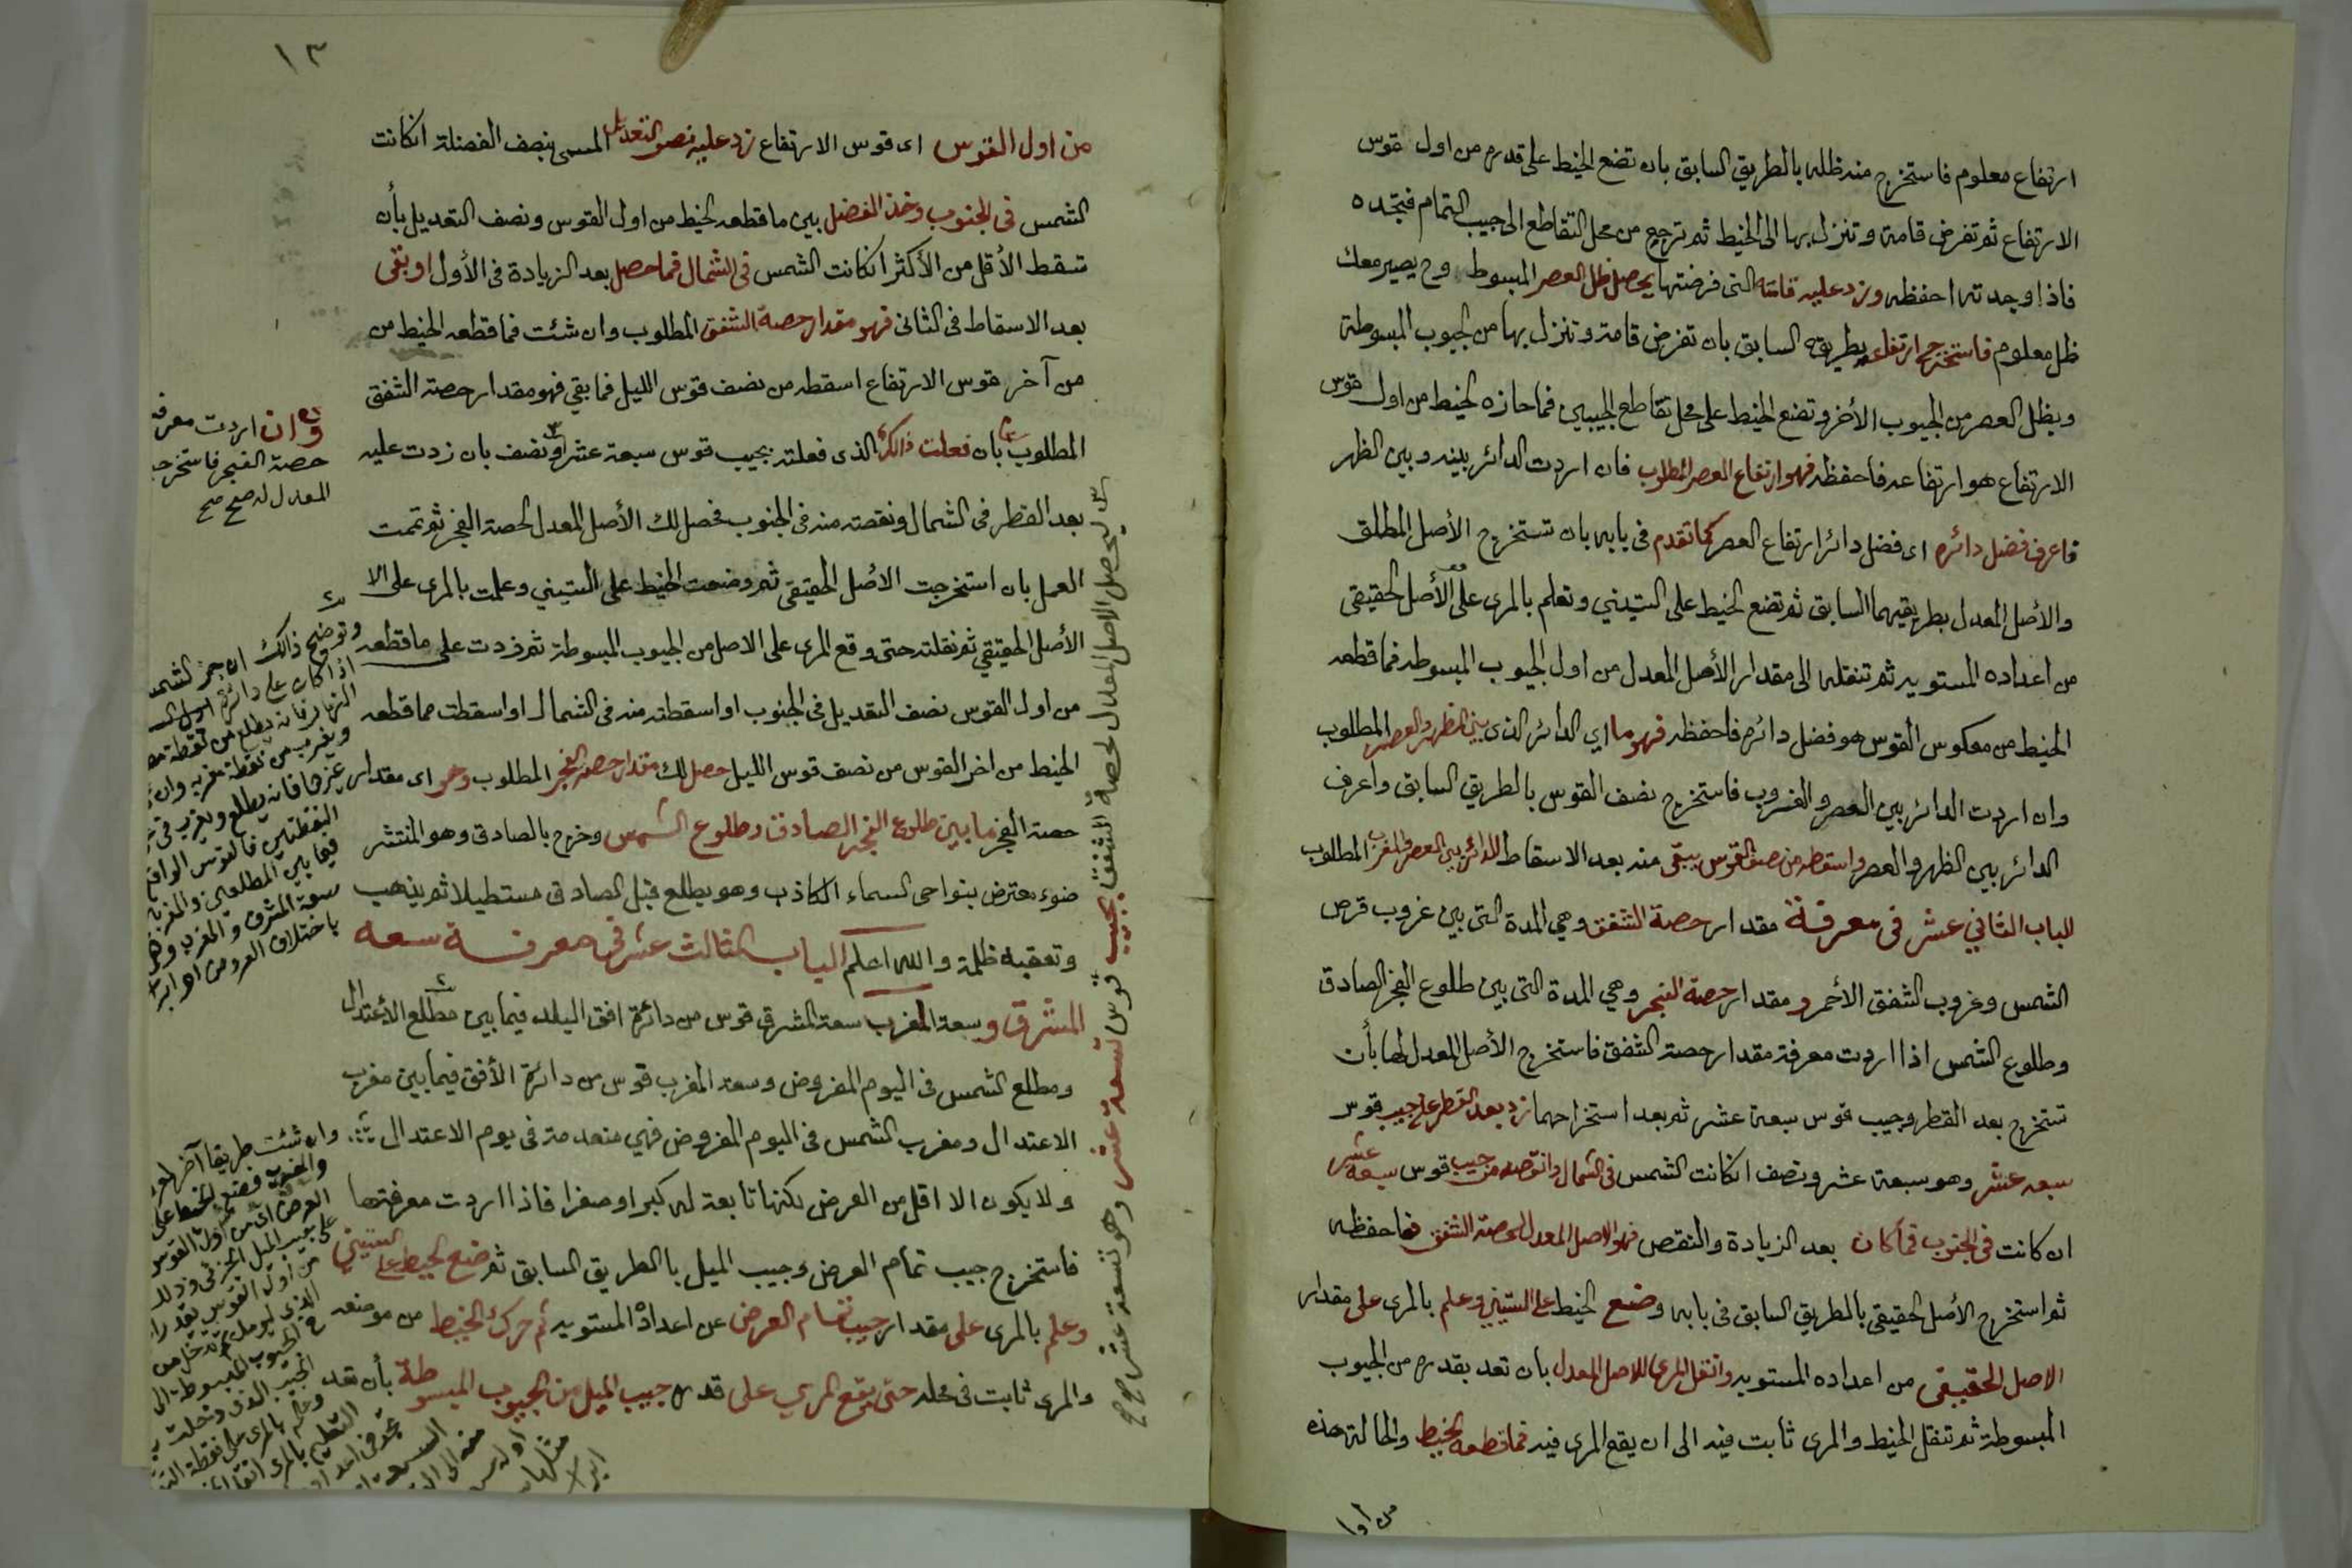 ارتفاع معلوم فاستخرج منه ظله بالطريق السابق بان تضع الخيط على قدره من اول قوس
الارتفاع ثم تفرض قامة وتنزل بها الى الخيط ثم ترجع من محل التقاطع الى جيب التمام فتجده
فاذا وجدته احفظه وزد عليه قامته التى فرضتها يحصل ظل العصر المبسوط وح يصير معك
ظل معلوم فاستخرج ارتفاعه بطريقه السابق بان تفرض قامة وتنزل بها من الجيوب المبسوطة
وبظل العصر من الجيوب الأخر وتضع الخيط على محل تقاطع الجيبين فما حازه الخيط من اول قوس
الارتفاع هو ارتفاعه فاحفظه فهو ارتفاع العصر المطلوب فان اردت الدائر بينه وبين الظهر
فاعرف فضل دائره اى فضل دائر ارتفاع العصر كما تقدم فى بابه بان تستخرج الأصل المطلق
والأصل المعدل بطريقيهما السابق ثم تضع الخيط على الستيني وتعلم بالمرى على الأصل الحقيقى
من اعداده المستويه ثم تنقله الى مقدار الأصل المعدل من اول الجيوب المبسوطه فما قطعه
الخيط من معكوس القوس هو فضل دائره فاحفظه فهو ما اي الدائر الذى بين الظهر والعصر المطلوب
وان اردت الدائر بين العصر والغروب فاستخرج نصف القوس بالطريق السابق واعرف
الدائر بين الظهر والعصر واسقطه من نصف القوس يبقى منه بعد الاسقاط الدائر بين العصر والمغرب المطلوب
الباب الثاني عشر فى معرفة مقدار حصة الشفق وهي المدة التى بين غروب قرص
الشمس وغروب الشفق الأحمر ومقدار حصة الفجر وهي المدة التى بين طلوع الفجر الصادق
وطلوع الشمس اذا اردت معرفة مقدار حصة الشفق فاستخرج الأصل المعدل لها بأن
تستخرج بعد القطر وجيب قوس سبعة عشر ثم بعد استخراجهما زد بعد القطر على جيب قوس
سبعه عشر وهو سبعة عشر ونصف ان كانت الشمس فى الشمال وانقصه من جيب قوس سبعه عشر
ان كانت فى الجنوب فما كان بعد الزيادة والنقص فهو الاصل المعدل لحصة الشفق فاحفظه
ثم استخرج الأصل الحقيقي بالطريق السابق فى بابه وضع الخيط على الستيني وعلم بالمرى على مقدار
الاصل الحقيقى من اعداده المستويه وانقل المرى للاصل المعدل بان تعد بقدره من الجيوب
المبسوطة ثم تنقل الخيط والمرى ثابت فيه الى ان يقع المرى فيه فما قطعه الخيط والحالة هذه
من اول
١٣
من اول القوس اى قوس الارتفاع زد عليه نصف التعديل المسمى بنصف الفضلة ان كانت
الشمس فى الجنوب وخذ الفضل بين ما قطعه الخيط من اول القوس ونصف التعديل بأن
تسقط الأقل من الأكثر ان كانت الشمس فى الشمال فما حصل بعد الزيادة فى الأول او بقى
بعد الاسقاط فى الثانى فهو مقدار حصة الشفق المطلوب وان شئت فما قطعه الخيط من
من آخر قوس الارتفاع اسقطه من نصف قوس الليل فما بقي فهو مقدار حصة الشفق
المطلوب بأن فعلت ذالك الذى فعلته بجيب قوس سبعة عشر ونصف بان زدت عليه
بعد القطر فى الشمال ونقصته منه فى الجنوب فحصل لك الأصل المعدل لحصة الفجر ثم تممت
العمل بان استخرجت الأصل الحقيقى ثم وضعت الخيط على الستيني وعلمت بالمرى على الا
الأصل الحقيقي ثم نقلته حتى وقع المرى على الاصل من الجيوب المبسوطة ثم زدت على ما قطعه
من اول القوس نصف التعديل فى الجنوب او اسقطته منه فى الشمال او اسقطت مما قطعه
الخيط من اخر القوس من نصف قوس الليل حصل لك مقدار حصة الفجر المطلوب وهو اى مقدار
حصة الفجر ما بين طلوع الفجر الصادق وطلوع الشمس وخرج بالصادق وهو المنتشر
ضوءه معترض بنواحى السماء الكاذب وهو يطلع قبل الصادق مستطيلا ثم يذهب
وتعقبه ظلمة والله اعلم الباب الثالث عشر فى معرفة سعه
المشرق وسعة المغرب سعة المشرق قوس من دائرة افق البلد فيما بين مطلع الأعتدال
ومطلع الشمس فى اليوم المفروض وسعة المغرب قوس من دائرة الأفق فيما بين مغرب
الاعتدال ومغرب الشمس فى اليوم المفروض فهي منعدمة فى يوم الاعتدال
ولا يكون الا اقل من العرض لكنها تابعة له كبرا وصغرا فاذا اردت معرفتها
فاستخرج جيب تمام العرض وجيب الميل بالطريق السابق ثم ضع الخيط على الستيني
وعلم بالمرى على مقدار جيب تمام العرض من اعداده المستويه ثم حرك الخيط من موضعه
والمرى ثابت فى محله حتى يقع المري على قدر جيب الميل من الجيوب المبسوطة بأن تعد
وان اردت معرفة
حصة الفجر فاستخرج
المعدل له صح صح
ليحصل الاصل المعدل لحصة الشفق بجيب قوس تسعة عشر وهو تسعة عشر
وتوضيح ذالك ان جرم الشمس
اذا كان على دائرة
النهار فانه يطلع من نقطة
ويغرب من نقطة مغربه وان
غيرها فانه يطلع ويغرب فى
النقطتين فالقوس الواقع
فيما بين المطلعين والمغربين
سعة المشرق والمغرب وهى
باختلاف العروض اه
وان شئت طريقا آخر
فضع الخيط على
العرض اى من اول القوس
على جيب الميل الجزئى
من اول القوس بقدر